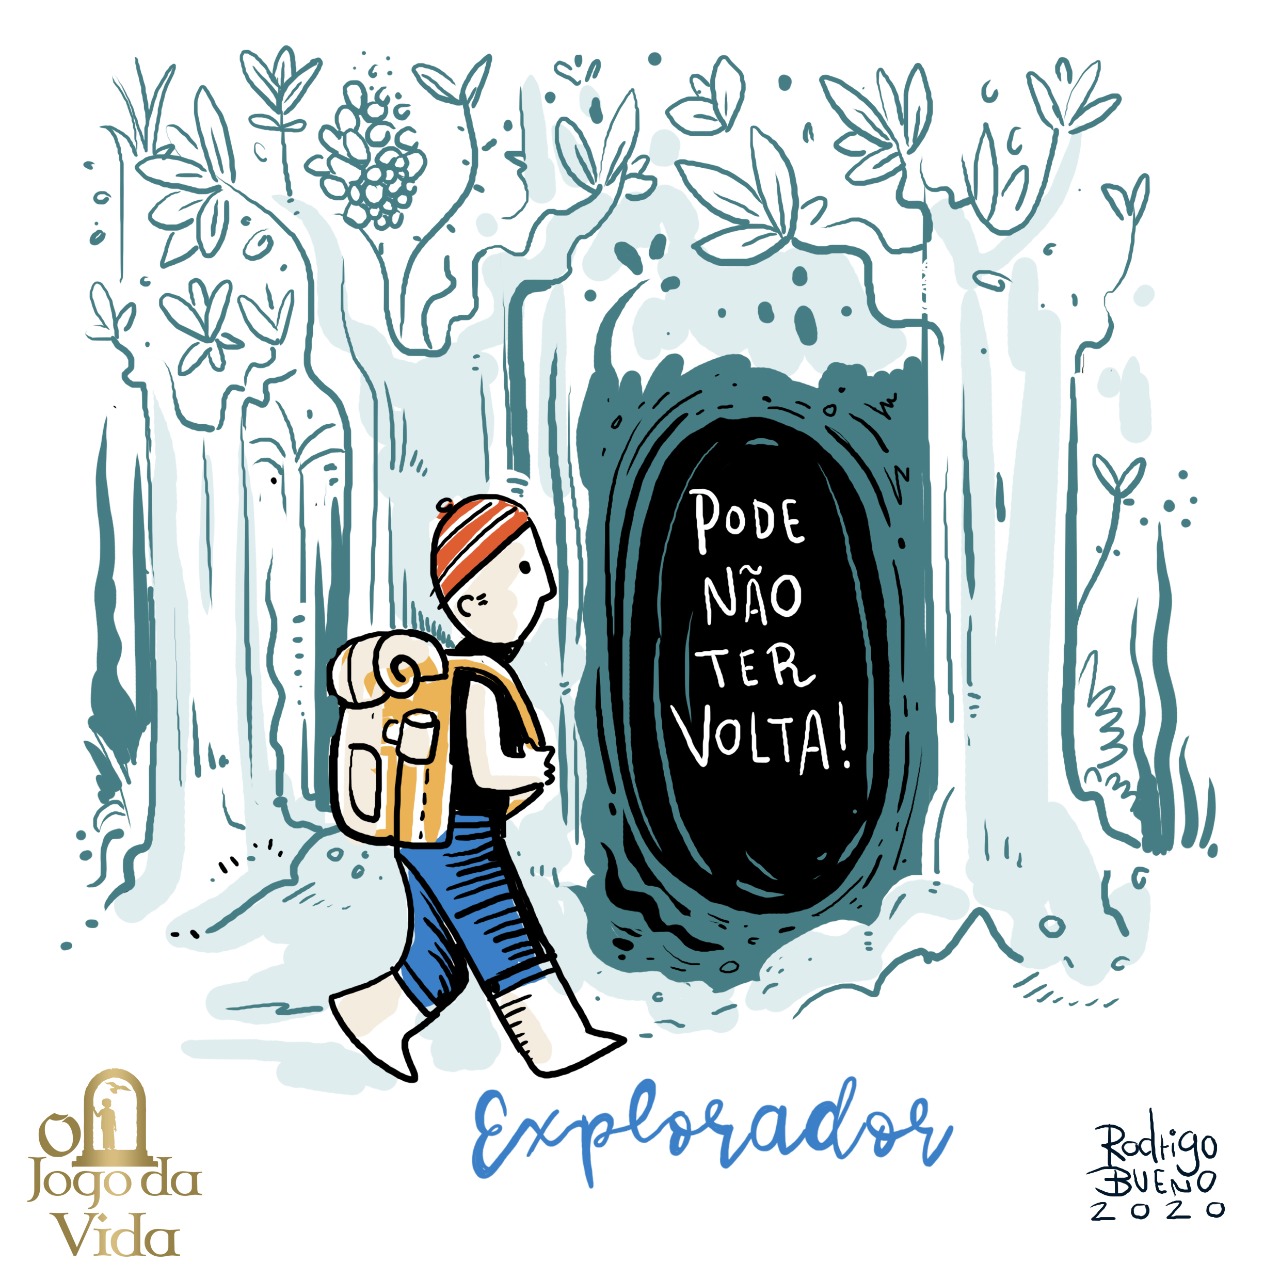 PODE
NÃO
TER
VOLTA!
Explorador
O
Jogo da
Vida
Rodrigo
BUENO
2020